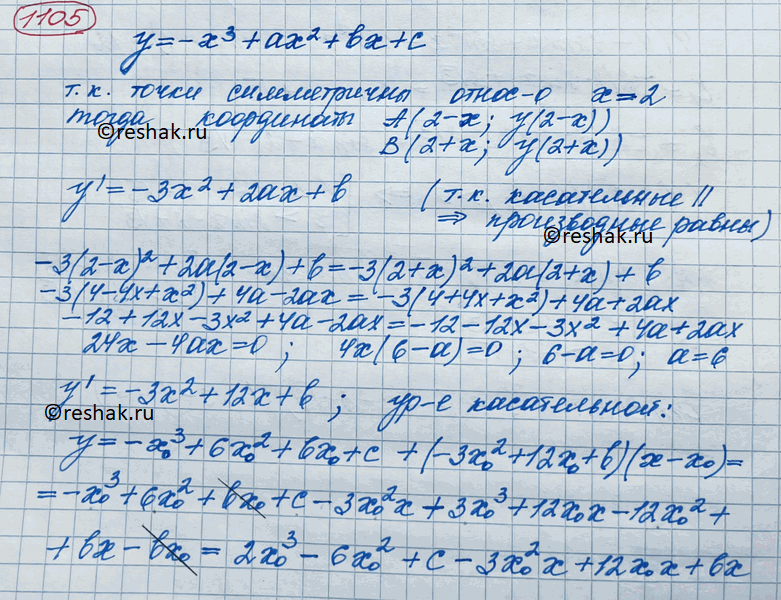 1105
y=-x³+ax²+bx+c
т.к. точки симметричны относ-о x=2
тогда координаты A(2-x; y(2-x))
©reshak.ru
B(2+x; y(2+x))
y'=-3x²+2ax+b (т.к. касательные ||
⇒ производные равны)
©reshak.ru
-3(2-x)²+2a(2-x)+b=-3(2+x)²+2a(2+x)+b
-3(4-4x+x²)+4a-2ax=-3(4+4x+x²)+4a+2ax
-12+12x-3x²+4a-2ax=-12-12x-3x²+4a+2ax
24x-4ax=0; 4x(6-a)=0; 6-a=0; a=6
y'=-3x²+12x+b; ур-е касательной:
©reshak.ru
y=-x₀³+6x₀²+bx₀+c+(-3x₀²+12x₀+b)(x-x₀)=
=-x₀³+6x₀²+bx₀+c-3x₀²x+3x₀³+12x₀x-12x₀²+
+bx-bx₀=2x₀³-6x₀²+c-3x₀²x+12x₀x+bx